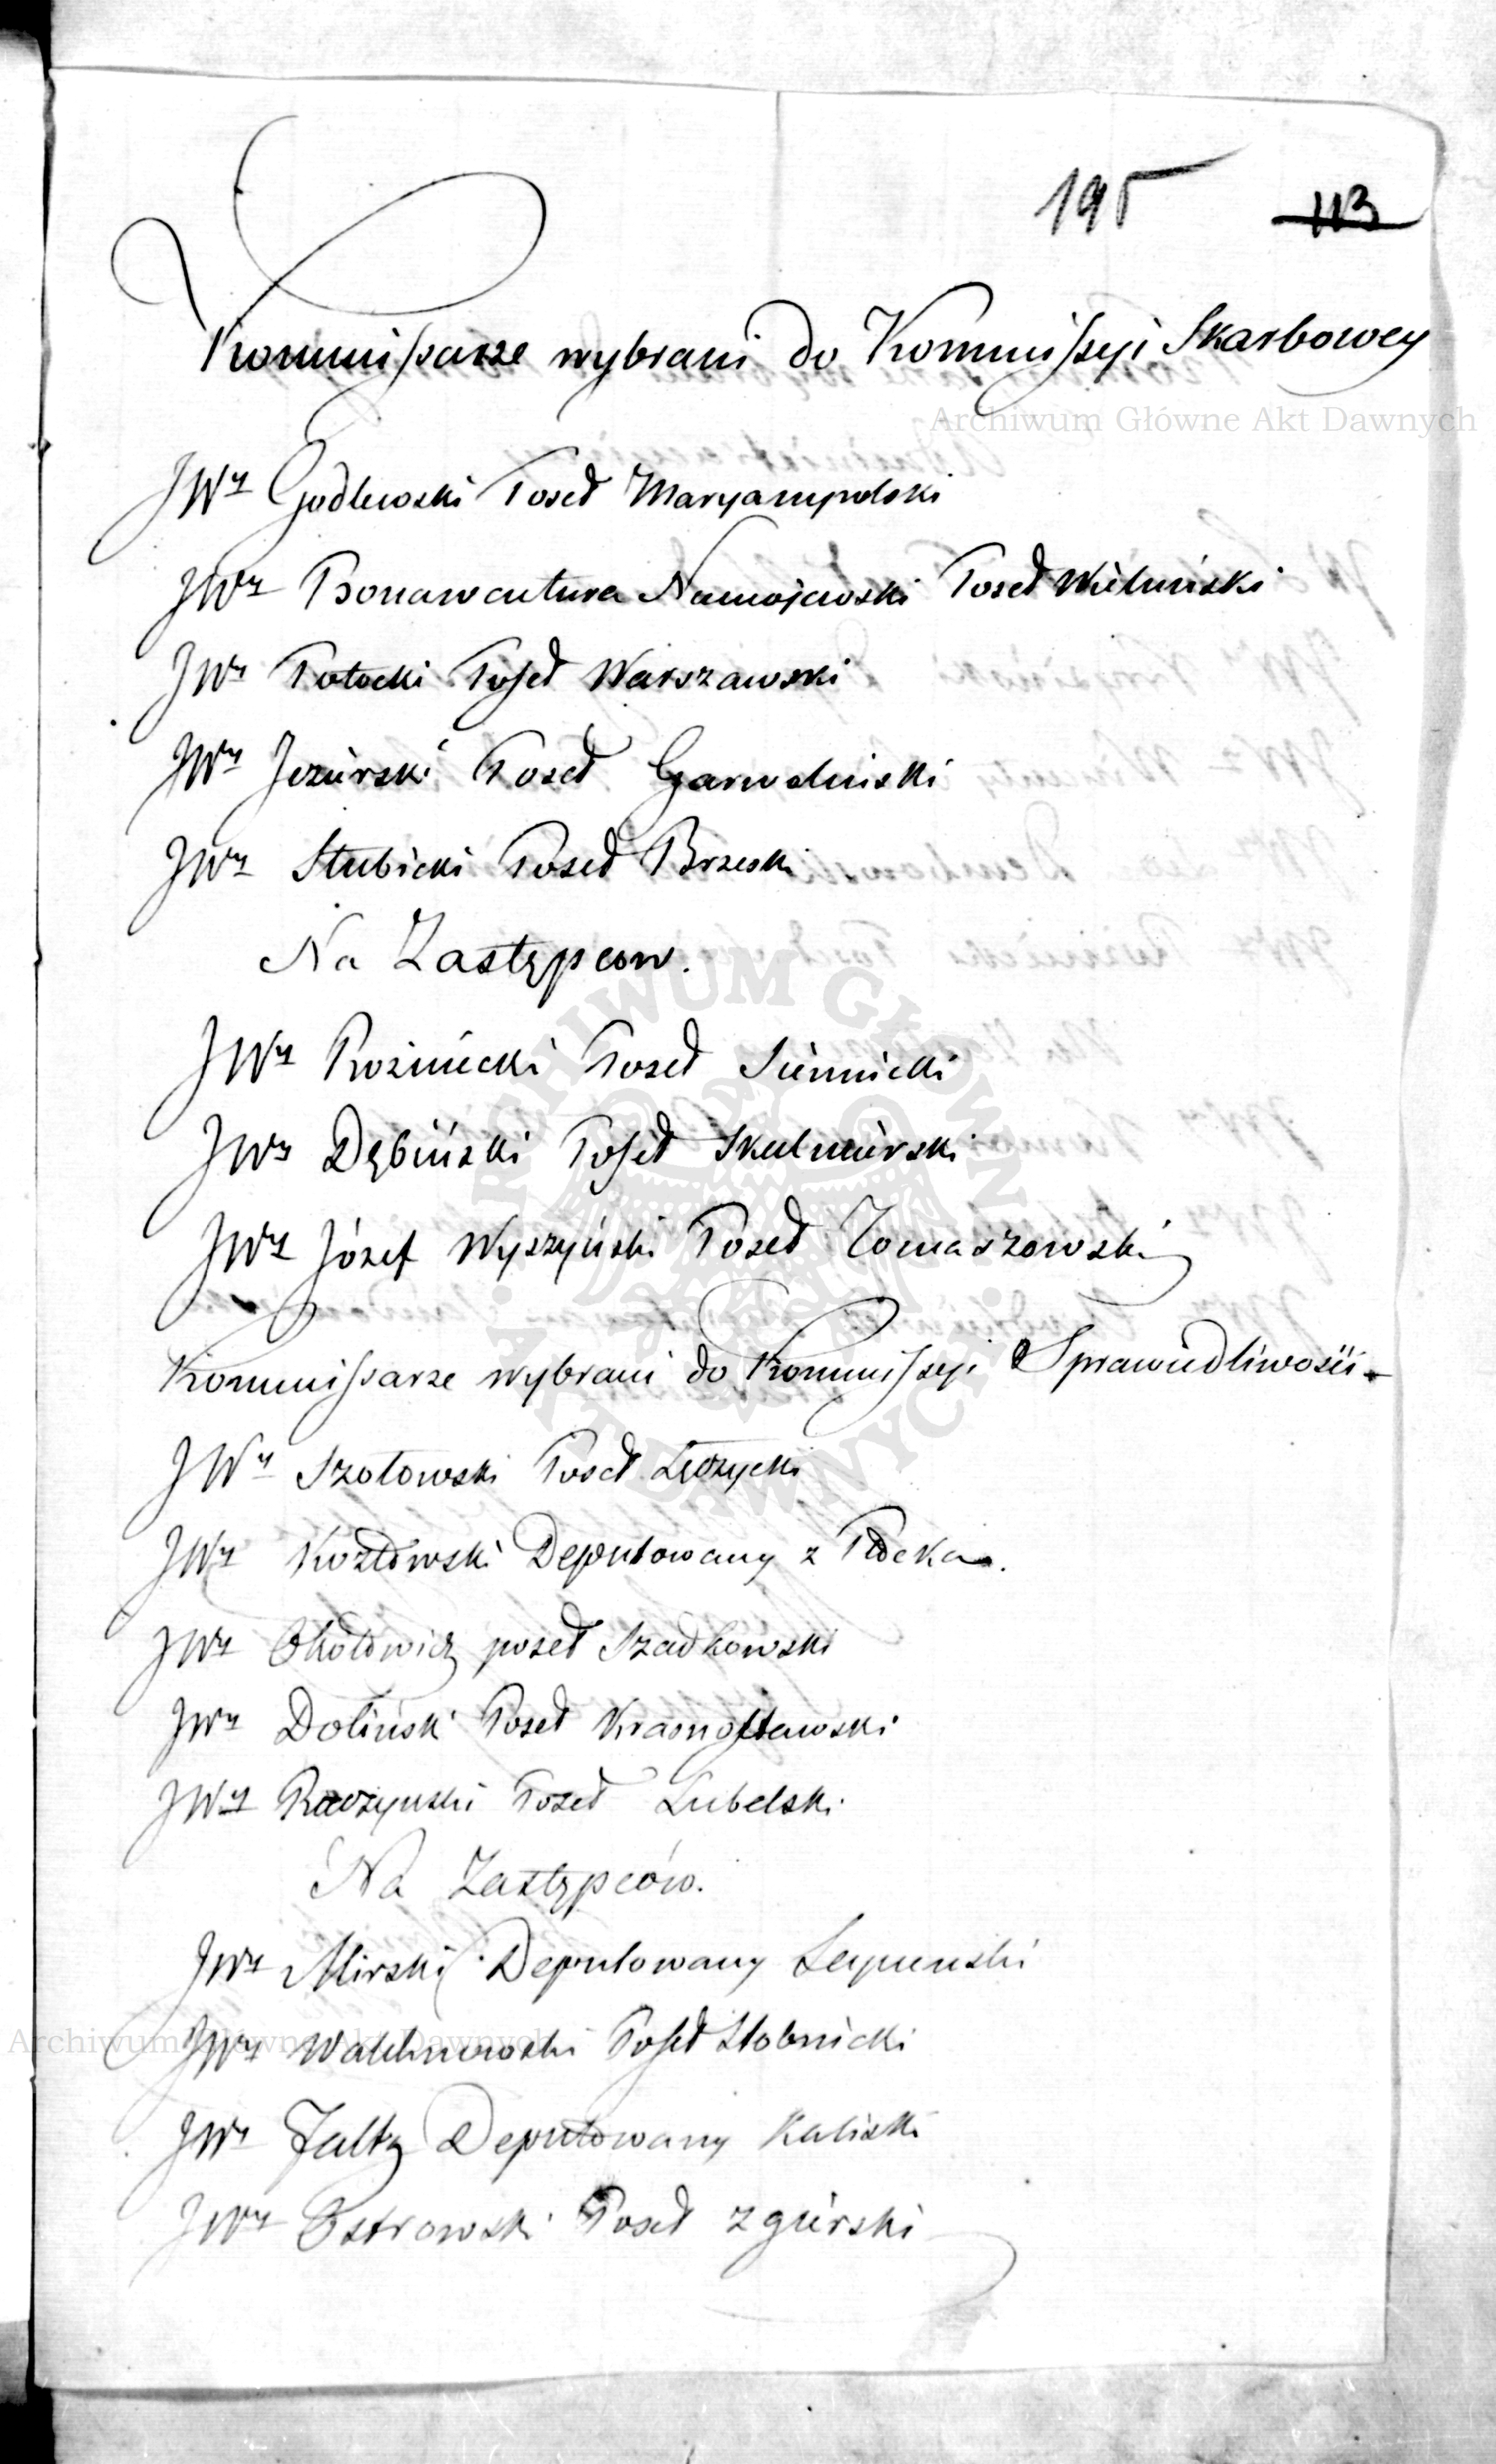 195 113
Kommissarze wybrani do Kommissyi Skarbowey
Archiwum Główne Akt Dawnych
JWy Godlewski Poseł Maryampolski
JWy Bonawentura Niemojewski Poseł Wieluński
JWy Potocki Poseł Warszawski
JWy Jezierski Poseł Garwoliński
JWy Słubicki Poseł Brzeski
Na Zastępcow.
JWy Rożniecki Poseł Siennicki
JWy Dębiński Poseł Skalmierski
JWy Józef Wyszyński Poseł Tomaszowski
Kommissarze wybrani do Kommissyi Sprawiedliwości
JWy Szołowski Poseł Łęczycki
JWy Kozłowski Deputowany z Płocka.
JWy Okołowicz poseł Szadkowski
JWy Doliński Poseł Krasnostawski
JWy Raczyński Poseł Lubelski
Na Zastępców.
JWy Mirski Deputowany Seyneński
JWy Walchnowski Poseł Stobnicki
Archiwum Główne Akt Dawnych
JWy Faltz Deputowany Kaliski
JWy Ostrowski Poseł Zgierski
ARCHIWUM GŁÓWNE AKT DAWNYCH